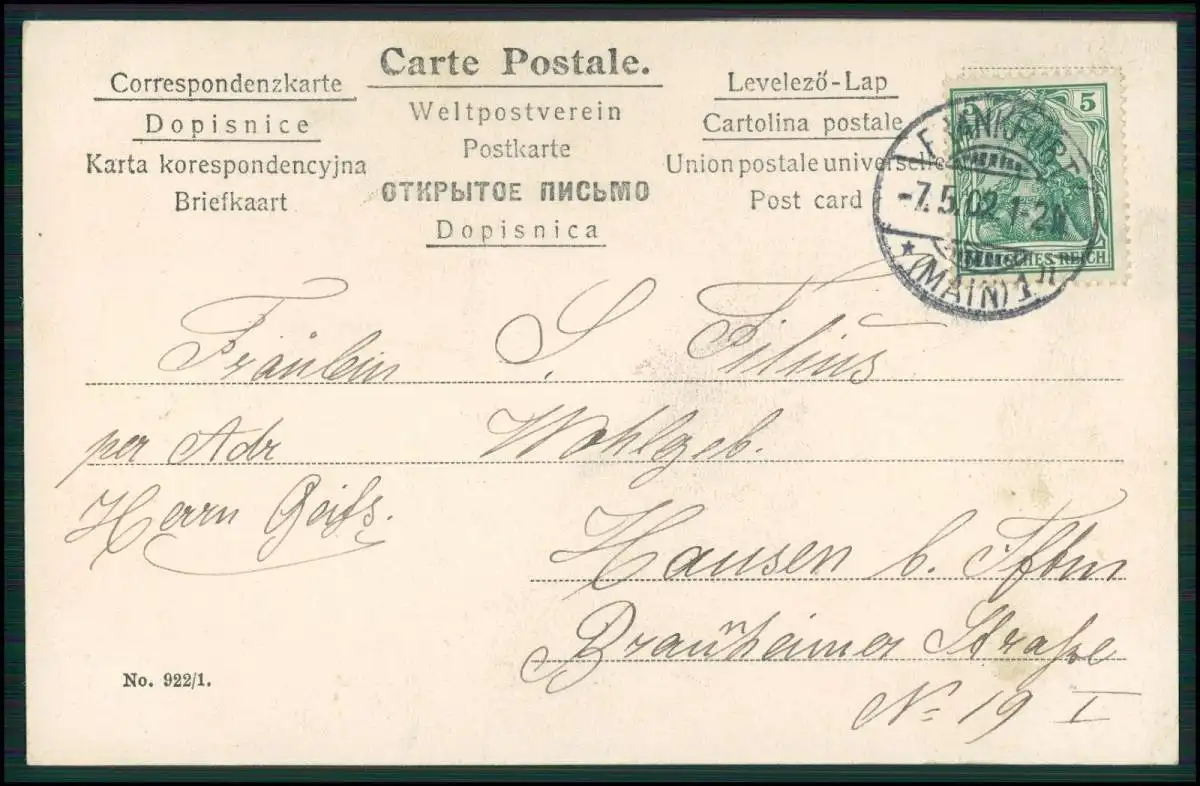 Carte Postale.
Correspondenzkarte
Dopisnice
Karta korespondencyjna
Briefkaart
Weltpostverein
Postkarte
ОТКРЫТОЕ ПИСЬМО
Dopisnica
Levelező-Lap
Cartolina postale
Union postale universelle
Post card
5 5
DEUTSCHES REICH
FRANKFURT
-7.5.02.1-2N
* (MAIN) 1. n
Fräulein S. Filius
per Adr Wohlgeb.
Herrn Geifs.
Hausen b. Ffm
Braunheimer Straße
No 19 I
No. 922/1.